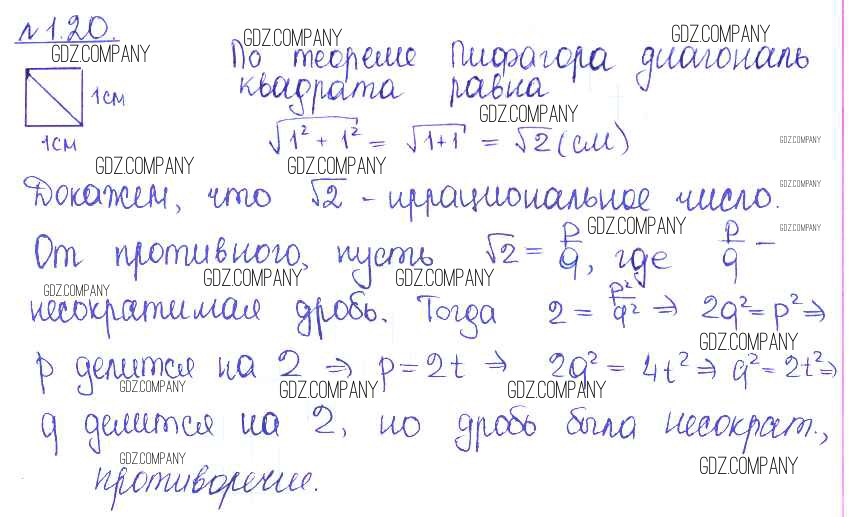 №1.20.
GDZ.COMPANY GDZ.COMPANY GDZ.COMPANY
По теореме Пифагора диагональ
1см квадрата равна
GDZ.COMPANY
1см √1² + 1² = √1+1 = √2 (см) GDZ.COMPANY
GDZ.COMPANY GDZ.COMPANY
Докажем, что √2 - иррациональное число. GDZ.COMPANY
GDZ.COMPANY GDZ.COMPANY
От противного, пусть √2 = p/q, где p/q —
GDZ.COMPANY GDZ.COMPANY GDZ.COMPANY
несократимая дробь. Тогда 2 = p²/q² ⇒ 2q² = p² ⇒
GDZ.COMPANY
p делится на 2 ⇒ p = 2t ⇒ 2q² = 4t² ⇒ q² = 2t² ⇒
GDZ.COMPANY GDZ.COMPANY GDZ.COMPANY
q делится на 2, но дробь была несократ.,
GDZ.COMPANY GDZ.COMPANY
противоречие.